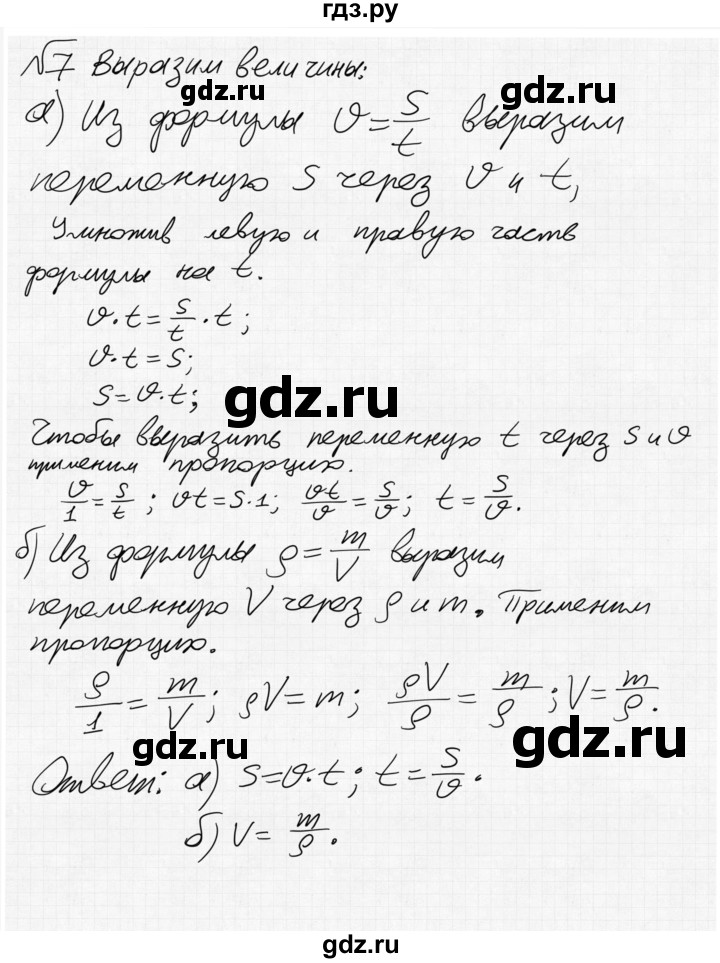 гдз.ру
№7 Выразим величины:
gdz.ru gdz.ru
а) Из формулы v = s/t выразим
переменную s через v и t,
Умножив левую и правую часть
формулы на t.
v·t = s/t · t;
v·t = s;
s = v·t;
gdz.ru
Чтобы выразить переменную t через s и v
применим пропорцию.
v/1 = s/t; vt = s·1; vt/v = s/v; t = s/v.
б) Из формулы ρ = m/V выразим
переменную V через ρ и m. Применим
пропорцию.
ρ/1 = m/V; ρV = m; ρV/ρ = m/ρ; V = m/ρ.
gdz.ru gdz.ru
Ответ: а) s = v·t; t = s/v.
б) V = m/ρ.
gdz.ru